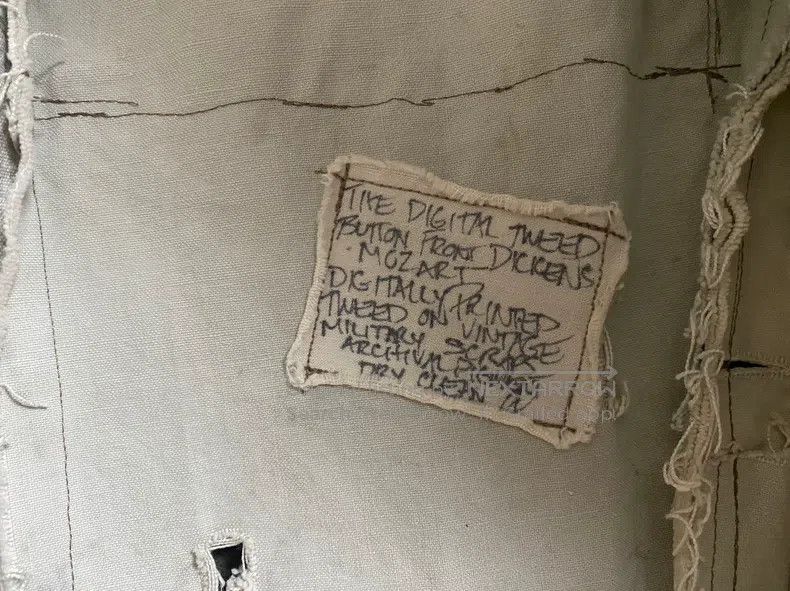 THE DIGITAL TWEED
BUTTON FRONT DICKENS
MOZART
DIGITALLY PRINTED
TWEED ON VINTAGE
MILITARY SCRAP
ARCHIVAL
DRY CLEAN
NEXTARROW